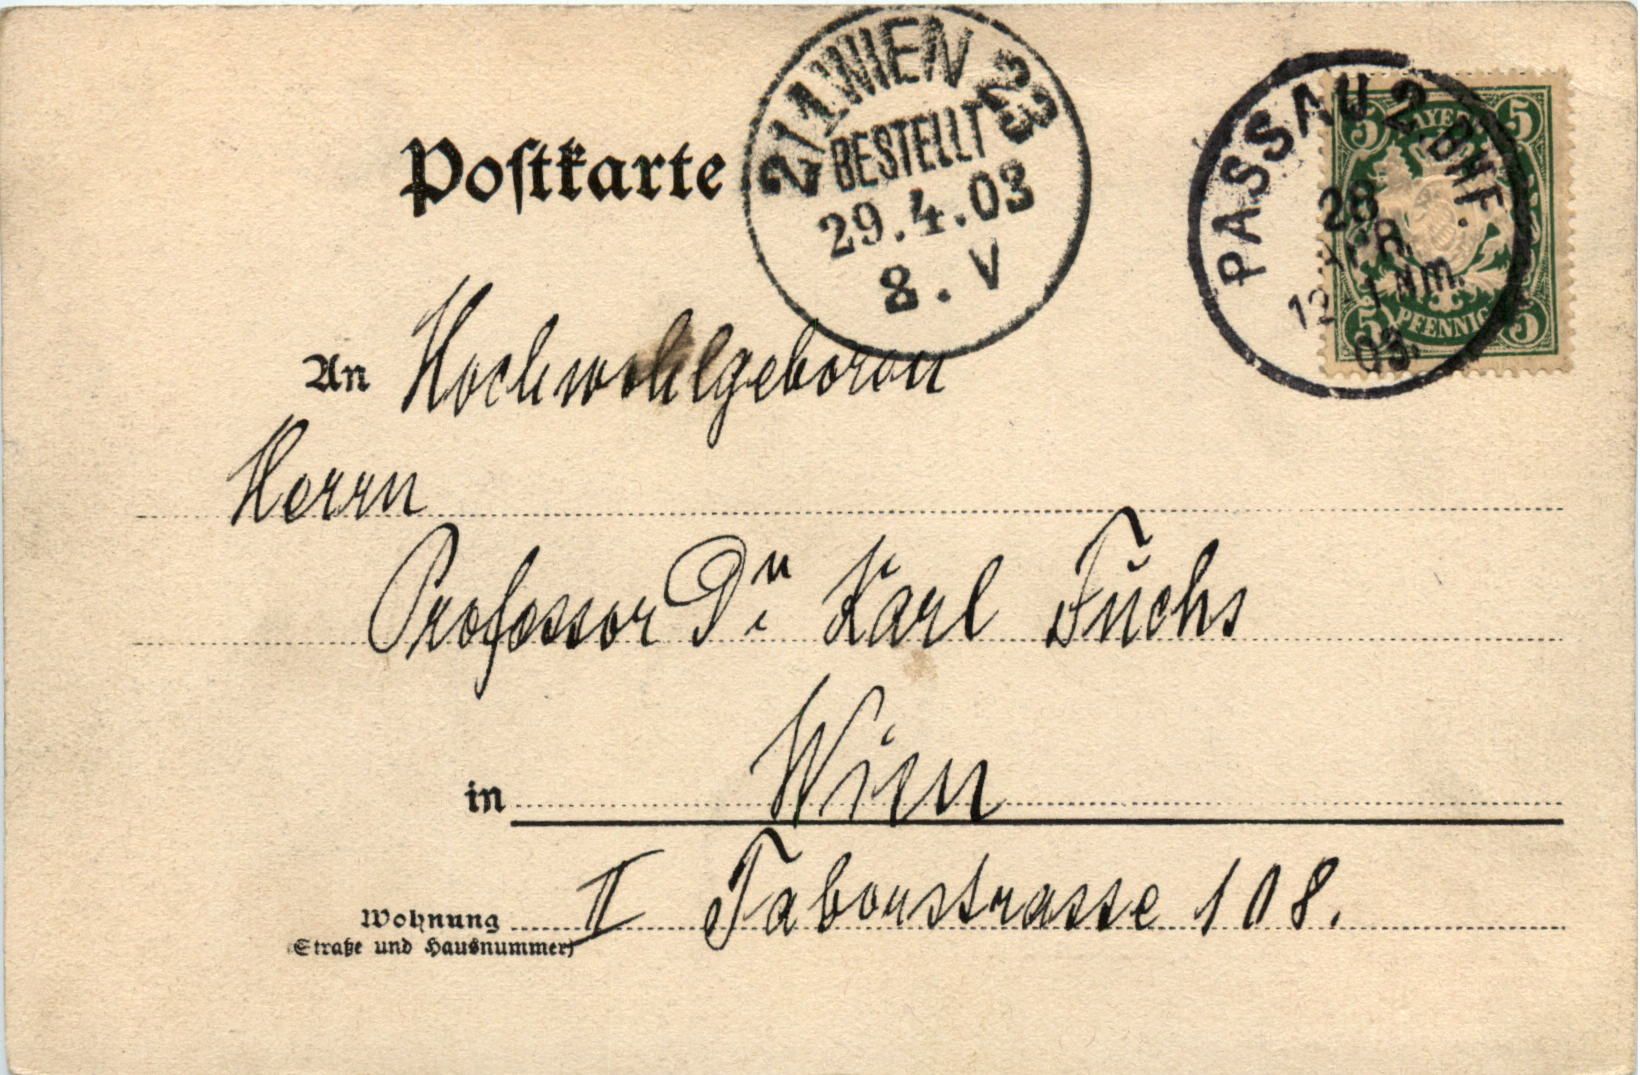 2/1 WIEN 23
BESTELLT
29.4.03
8.V
PASSAU 2 BHF.
28
12-1 Nm.
03.
5 BAYERN 5
5 PFENNIG 5
Poſtkarte
An Hochwohlgeboren
Herrn
Professor Dr. Karl Fuchs
in Wien
Wohnung II Taborstrasse 108.
(Straße und Hausnummer)